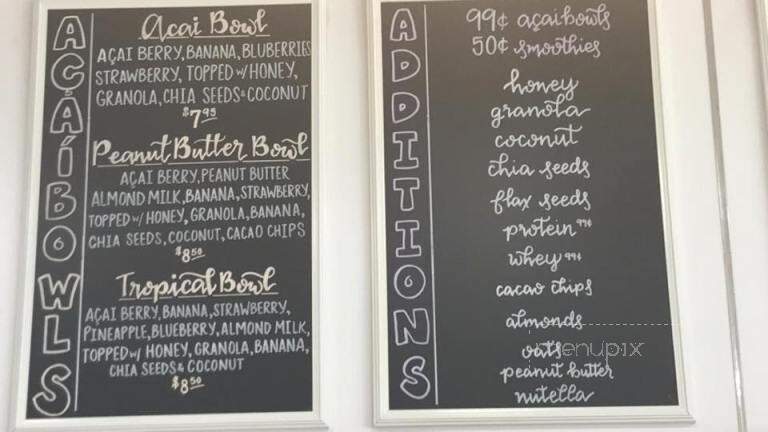 AÇAÍ BOWLS
Açai Bowl
AÇAI BERRY, BANANA, BLUBERRIES
STRAWBERRY, TOPPED w/ HONEY,
GRANOLA, CHIA SEEDS & COCONUT
$7.95
Peanut Butter Bowl
AÇAI BERRY, PEANUT BUTTER
ALMOND MILK, BANANA, STRAWBERRY,
TOPPED w/ HONEY, GRANOLA, BANANA,
CHIA SEEDS, COCONUT, CACAO CHIPS
$8.50
Tropical Bowl
AÇAI BERRY, BANANA, STRAWBERRY,
PINEAPPLE, BLUEBERRY, ALMOND MILK,
TOPPED w/ HONEY, GRANOLA, BANANA,
CHIA SEEDS & COCONUT
$8.50
ADDITIONS
99¢ açai bowls
50¢ smoothies
honey
granola
coconut
chia seeds
flax seeds
protein 99¢
whey 99¢
cacao chips
almonds
oats
menupix
peanut butter
nutella